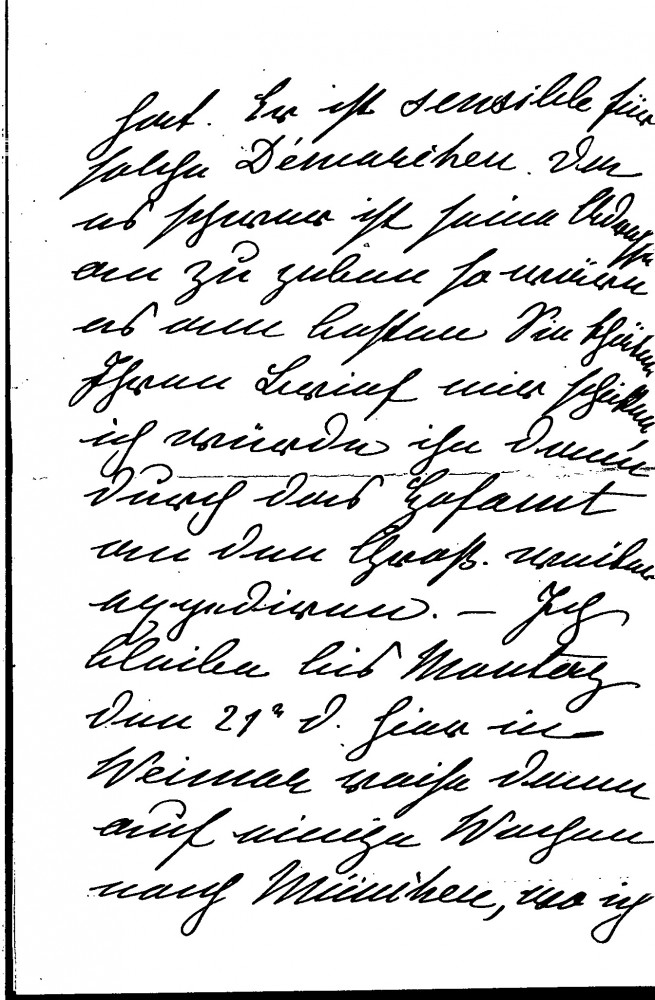 hat. Er ist sensible für
solche Démarchen. Da
es schwer ist seine Adresse
an zu geben so wäre
es am besten Sie thäten
Ihren Brief mir schicken
ich würde ihn dann
durch das Hofamt
an den Groß. weiter
expediren. – Ich
bleibe bis Montag
den 21n d. hier in
Weimar reise dann
auf einige Wochen
nach München, wo ich